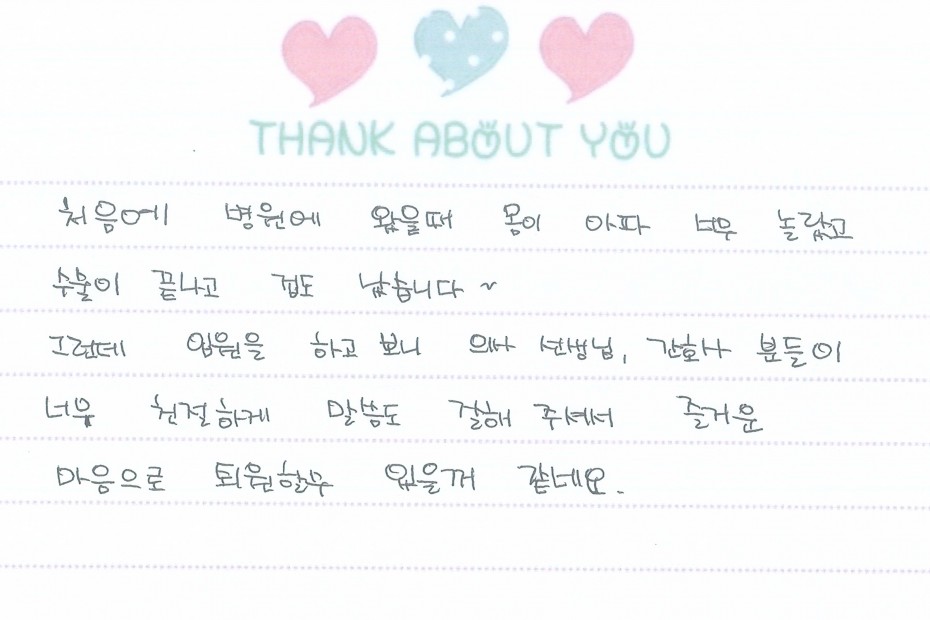 THANK ABOUT YOU
처음에 병원에 왔을때 몸이 아파 너무 놀랐고
수술이 끝나고 겁도 났습니다 ~
그런데 입원을 하고 보니 의사 선생님, 간호사 분들이
너무 친절하게 말씀도 잘해 주셔서 즐거운
마음으로 퇴원할수 있을꺼 같네요.